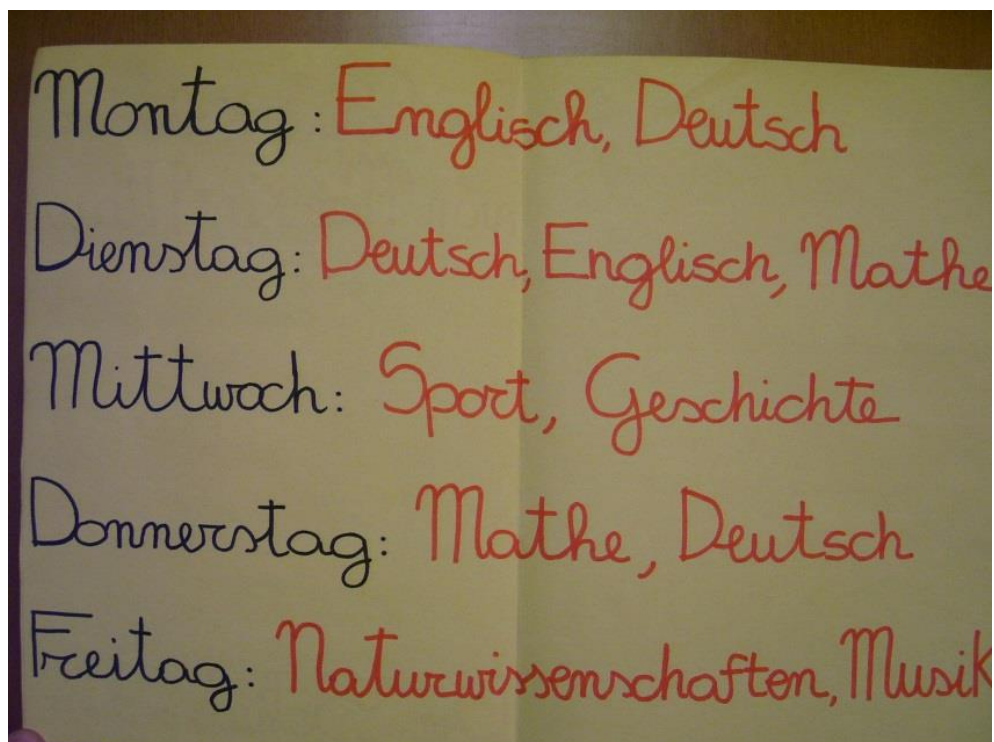 Montag: Englisch, Deutsch
Dienstag: Deutsch, Englisch, Mathe
Mittwoch: Sport, Geschichte
Donnerstag: Mathe, Deutsch
Freitag: Naturwissenschaften, Musik